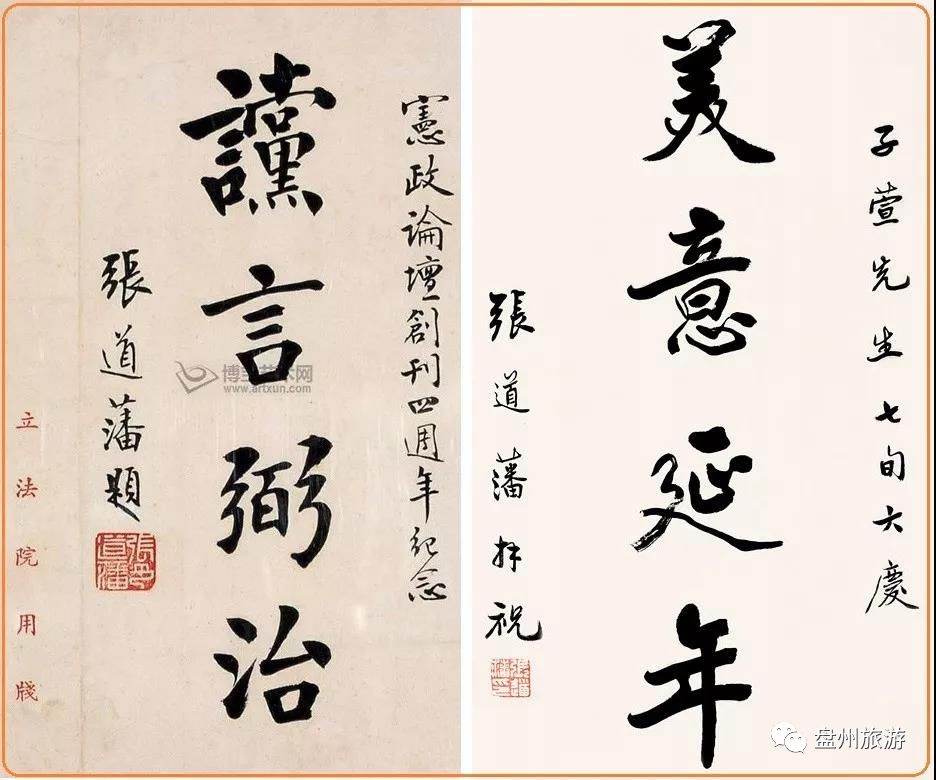 憲政論壇創刊四週年紀念
讜言弼治
張道藩題
張道藩
立法院用牋
博宝艺术网
www.artxun.com
子萱先生七旬大慶
美意延年
張道藩拜祝
盘州旅游